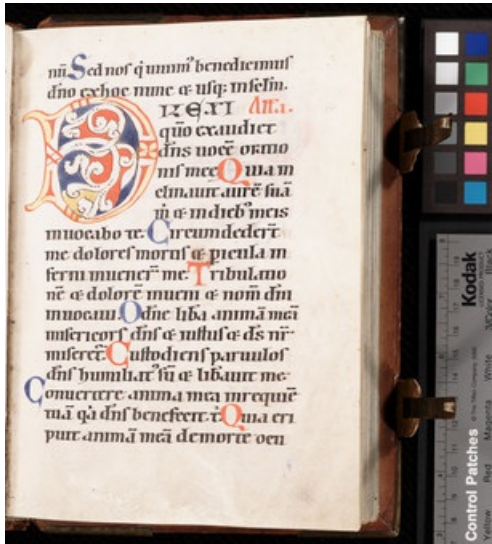 nů Sed nos q̇ uiuim᷒ benedicimus
dn̄o ex hoc nunc & usq; in sc̄lm.
DILEXI Ana.
quō exaudiet
dn̄s uocē or̄ōnıo
nis meę Quia in
clinauit aurē suā
m̄ & in dieb᷒ meis
inuocabo te. Circumdedert̄
me dolores mortis & picula in
ferni inuener̄ me. Tribulatio
nē & dolorē inueni & nom̄ dn̄i
inuocaui. O dn̄e liba animā meā
misericors dn̄s & iustus & ds̄ nr̄
miseret̄. Custodiens paruulos
dn̄s humiliat᷒ sū & libauit me.
Conuertere anima mea in requiē
tuā qa dn̄s benefecit t. Quia eri
puit animā meā de morte ocu
Kodak
Control Patches
Yellow
Red
Magenta
White
3/Color
Black